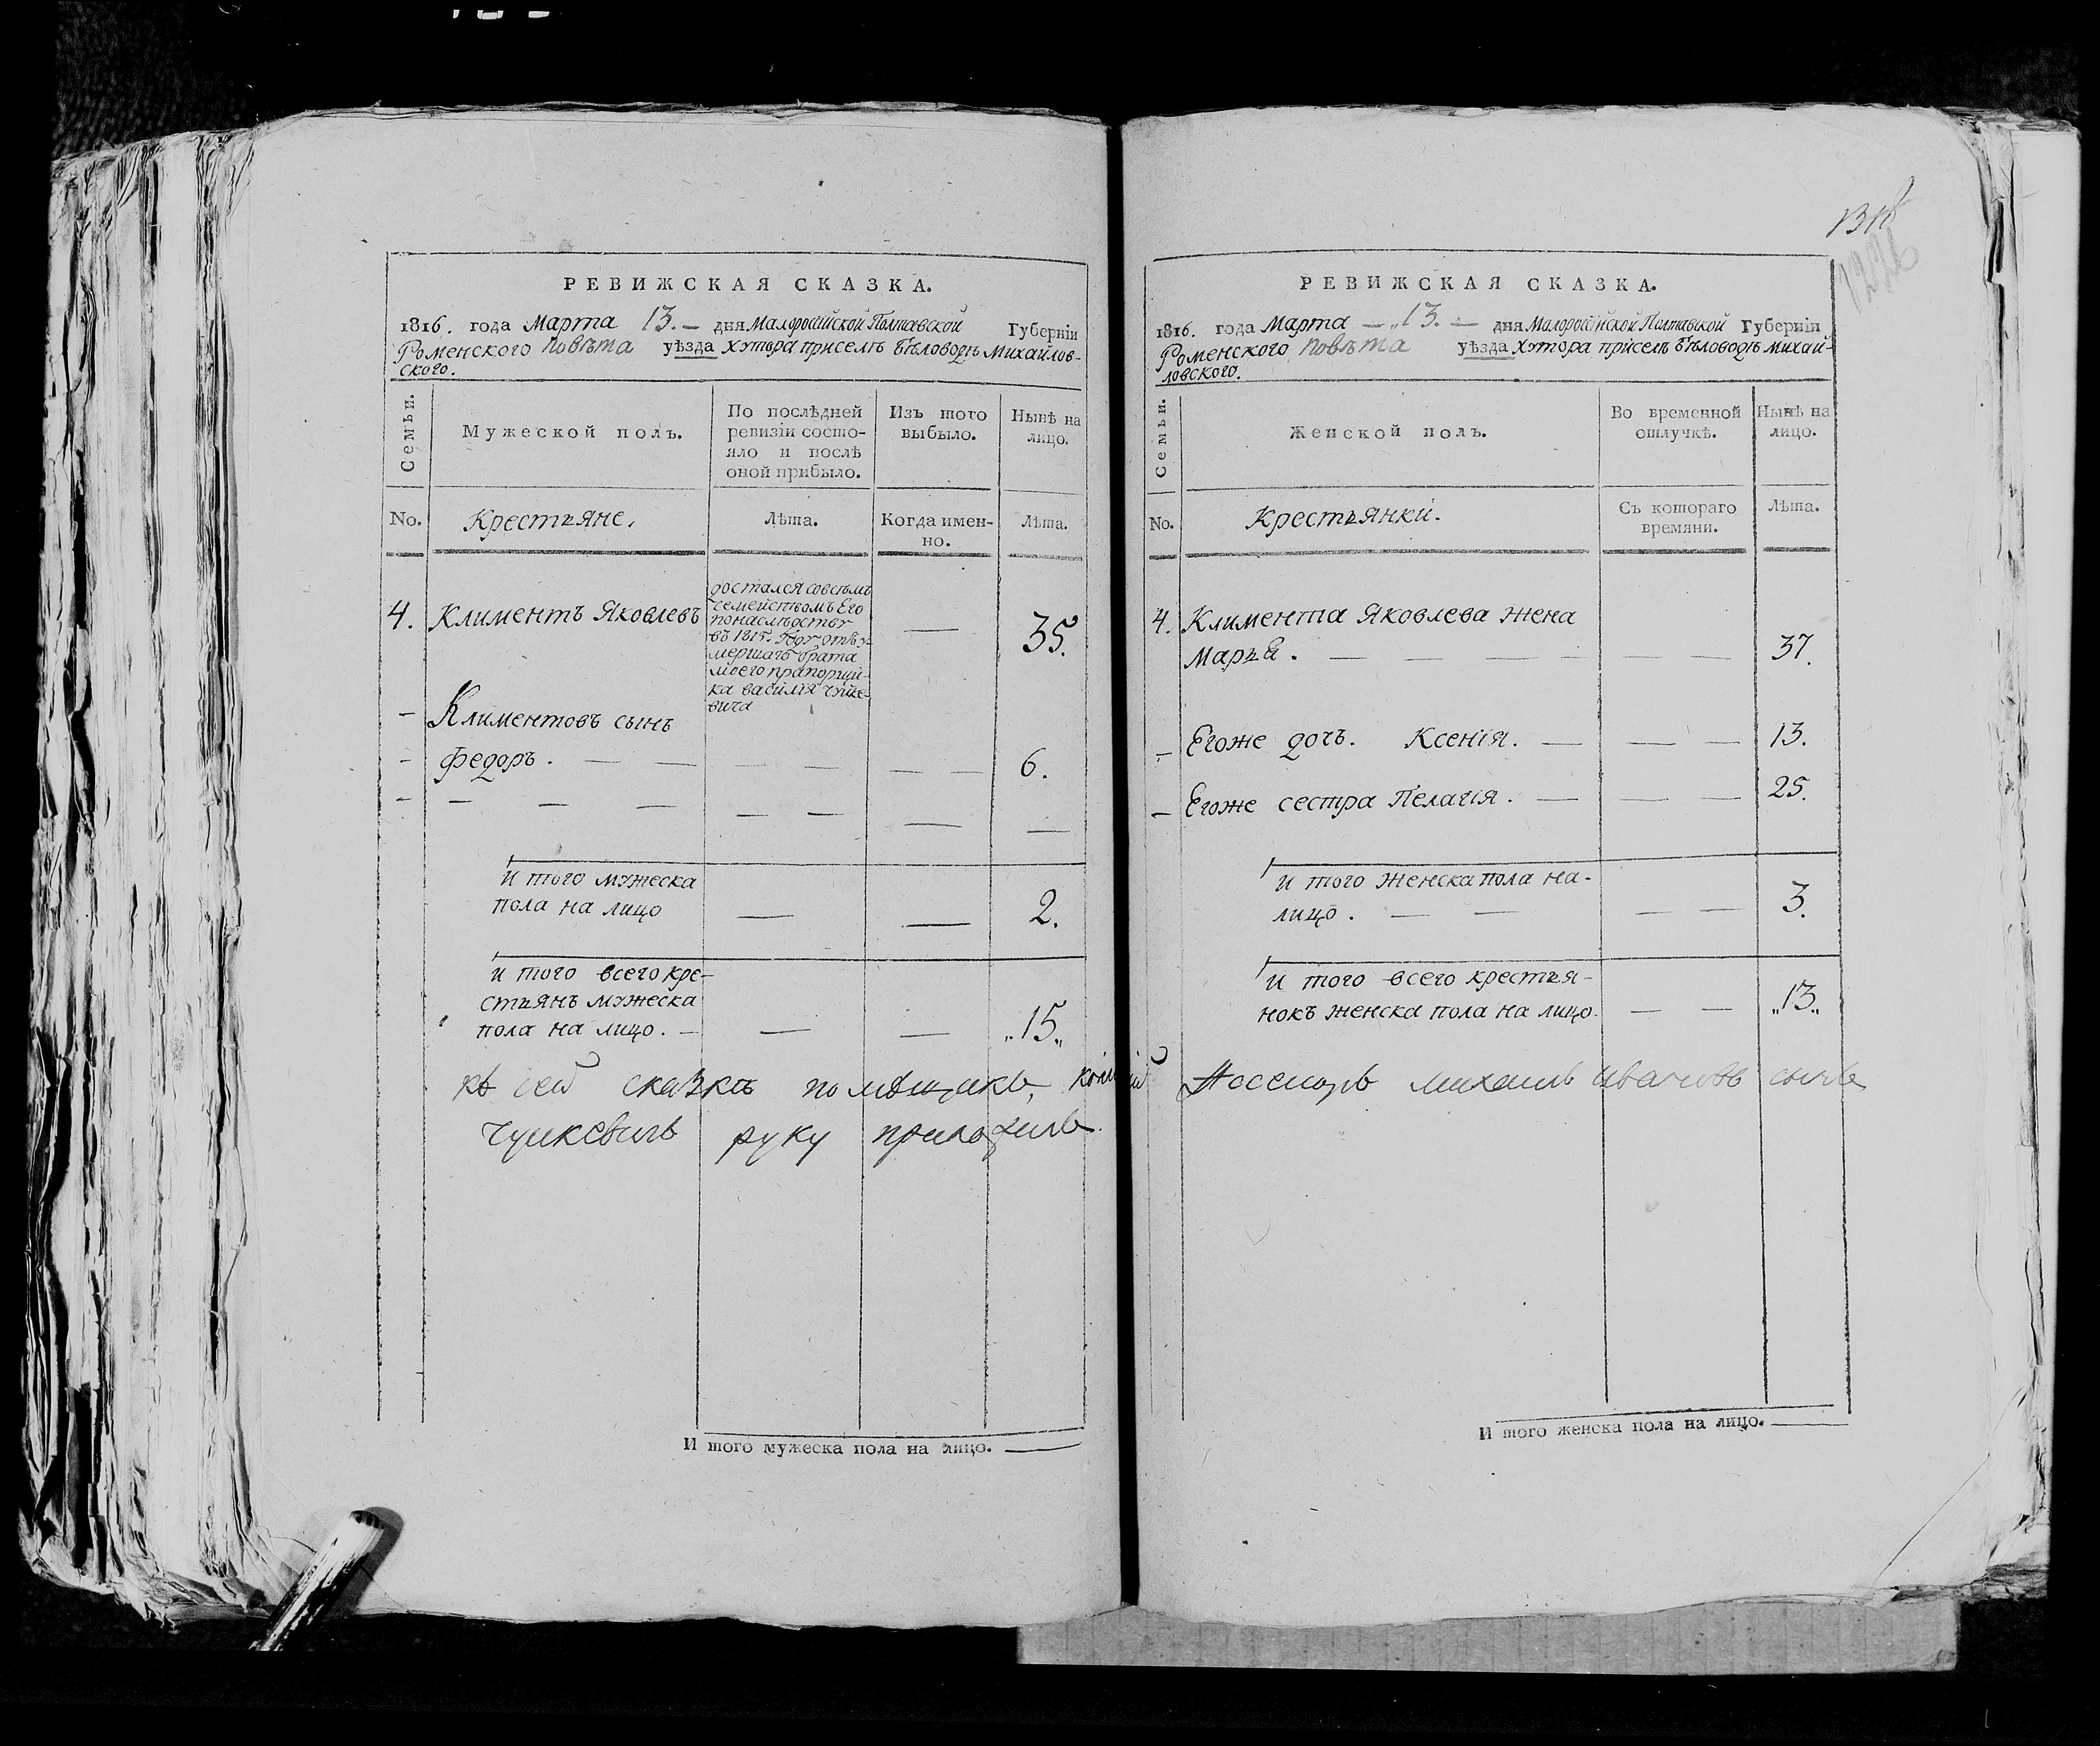 РЕВИЖСКАЯ СКАЗКА.
1816. года Марта 13. — дня Малороссійской Полтавской Губерніи
Роменского повѣта уѣзда хутора приселѣ Бѣловодѣ Михайлов-
ского.
Семьи.
Мужеской полъ.
По послѣдней
ревизіи состо-
яло и послѣ
оной прибыло.
Изъ того
выбыло.
Нынѣ на
лицо.
No. Крестьяне. Лѣта. Когда имен-
но.
Лѣта.
4. Климентъ Яковлевъ — 35.
достался совсѣмъ
семействомъ Его
понаслѣдству
въ 1815. Году отъ у-
мершаго брата
моего прапорщи-
ка Василія
вича
— Климентовъ сынъ
— Федоръ. — — — — — — 6.
— — — — — — — —
И того мужеска
пола на лицо — — 2.
И того всего кре-
стьянъ мужеска
пола на лицо. — — — „15„
къ сей сказкѣ помѣщикъ,
руку приложилъ
И того мужеска пола на лицо. —
1226
РЕВИЖСКАЯ СКАЗКА.
1816. года Марта — „13. — дня Малороссійской Полтавской Губерніи
Роменского повѣта уѣзда хутора приселѣ Бѣловодѣ Михай-
ловского.
Семьи.
Женской полъ.
Во временной
отлучкѣ.
Нынѣ на
лицо.
No. Крестьянки. Съ котораго
времяни.
Лѣта.
4. Климента Яковлева жена
Марья. — — — — — — 37.
— Егоже дочь. Ксенія. — — — 13.
— Егоже сестра Пелагія. — — — 25.
И того женска пола на-
лицо. — — — — 3.
И того всего крестья-
нокъ женска пола на лицо. — — „13„
Асесоръ Михаилъ Ивановъ сынъ
И того женска пола на лицо. —